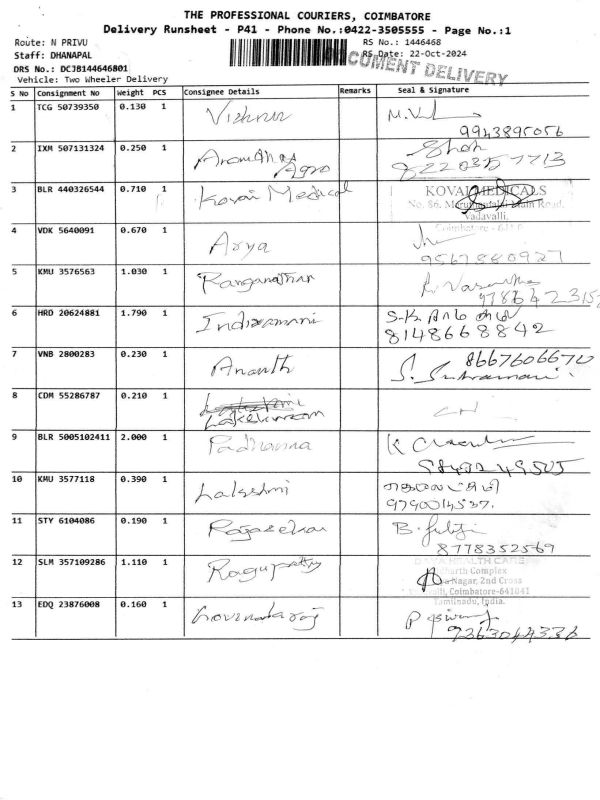 THE PROFESSIONAL COURIERS, COIMBATORE
Delivery Runsheet - P41 - Phone No.:0422-3505555 - Page No.:1
Route: N PRIVU
RS No.: 1446468
Staff: DHANAPAL
RS Date: 22-Oct-2024
DRS No.: DCJB144646801
COMENT DELIVERY
Vehicle: Two Wheeler Delivery
S No Consignment No Weight PCS Consignee Details Remarks Seal & Signature
1 TCG 50739350 0.130 1 Vishnu
9943895056
2 IXM 507131324 0.250 1 Agro
3 BLR 440326544 0.710 1 Kovai Medical
KOVAI MEDICALS
No. 86, Maruthamalai Main Road,
Vadavalli,
Coimbatore -
4 VDK 5640091 0.670 1 Arya
9567880927
5 KMU 3576563 1.030 1 Ranganathan
6 HRD 20624881 1.790 1 Indiramani S.K.
8148668842
7 VNB 2800283 0.230 1 Ananth 8667606670
8 CDM 55286787 0.210 1
9 BLR 5005102411 2.000 1 Padmanna K
10 KMU 3577118 0.390 1 Lakshmi
9790014537.
11 STY 6104086 0.190 1 Rajasekar B.
8778352569
12 SLM 357109286 1.110 1 Ragupathy
HEALTH CARE
Complex
Nagar, 2nd Cross
Coimbatore-641041
Tamilnadu, India.
13 EDQ 23876008 0.160 1 Govindaraj P